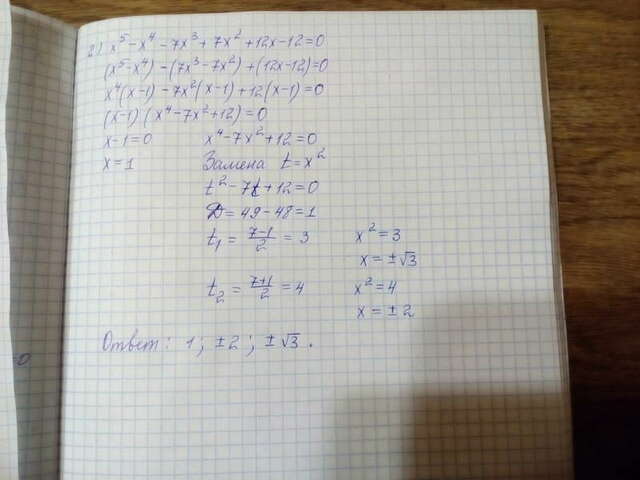 2) x⁵ - x⁴ - 7x³ + 7x² + 12x - 12 = 0
(x⁵ - x⁴) - (7x³ - 7x²) + (12x - 12) = 0
x⁴(x - 1) - 7x²(x - 1) + 12(x - 1) = 0
(x - 1)(x⁴ - 7x² + 12) = 0
x - 1 = 0 x⁴ - 7x² + 12 = 0
x = 1 Замена t = x²
t² - 7t + 12 = 0
D = 49 - 48 = 1
t₁ = (7-1)/2 = 3 x² = 3
x = ±√3
t₂ = (7+1)/2 = 4 x² = 4
x = ± 2
Ответ: 1; ±2; ±√3.
=0